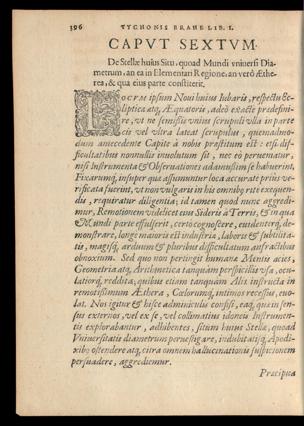 396 TYCHONIS BRAHE LIB. I.
CAPVT SEXTVM.
De Stellæ huius Situ, quoad Mundi vniuersi Dia-
metrum, an ea in Elementari Regione, an verò Æthe-
rea, & qua eius parte constiterit.
LOcus ipsum Noui huius Iubaris, respectu E-
clipticæ atq, Æquatoris, adeò exactè prædefini-
re, vt ne semißis vnius scrupuli vllâ in parte
cis vel vltra lateat scrupulus, quemadmo-
dum antecedente Capite à nobis præstitum est: etsi dif-
ficultatibus nonnullis inuolutum sit, nec eò peruenatur,
nisi Instrumenta & Obseruationes adamußim se habuerint,
Fixarumq, insuper quæ assumuntur loca accuratè priùs ve-
rificata fuerint, vt non vulgaris in his omnibus ritè exequen-
dis, requiratur diligentia; id tamen quod nunc aggredi-
mur, Remotionem videlicet eius Sideris à Terris, & in qua
Mundi parte effulserit, certò cognoscere, euidenterq, de-
monstrare, longè maioris est industriæ, laboris & subtilita-
tis, magisq, arduum & pluribus difficultatum anfractibus
obnoxium. Sed quo non pertingit humanæ Mentis acies,
Geometriâ atq, Arithmeticâ tanquàm perspicillis vsa, ocu-
latiorq, reddita; quibus etiam tanquam Alis instructa in
remotißimum Æthera, Cælorumq, intimos recessus, euo-
lat. Nos igitur & hisce adminiculis confisi, eaq, quæ in sen-
sus externos, vel ex se, vel collimatius idoneis Instrumen-
tis explorabantur, adhibentes, situm huius Stellæ, quoad
Vniuersitatis diametrum peruestigare, indubitatisq, Apodi-
xibus ostendere atq, citra omnem hallucinationis suspicionem
persuadere, aggrediemur.
Præcipua